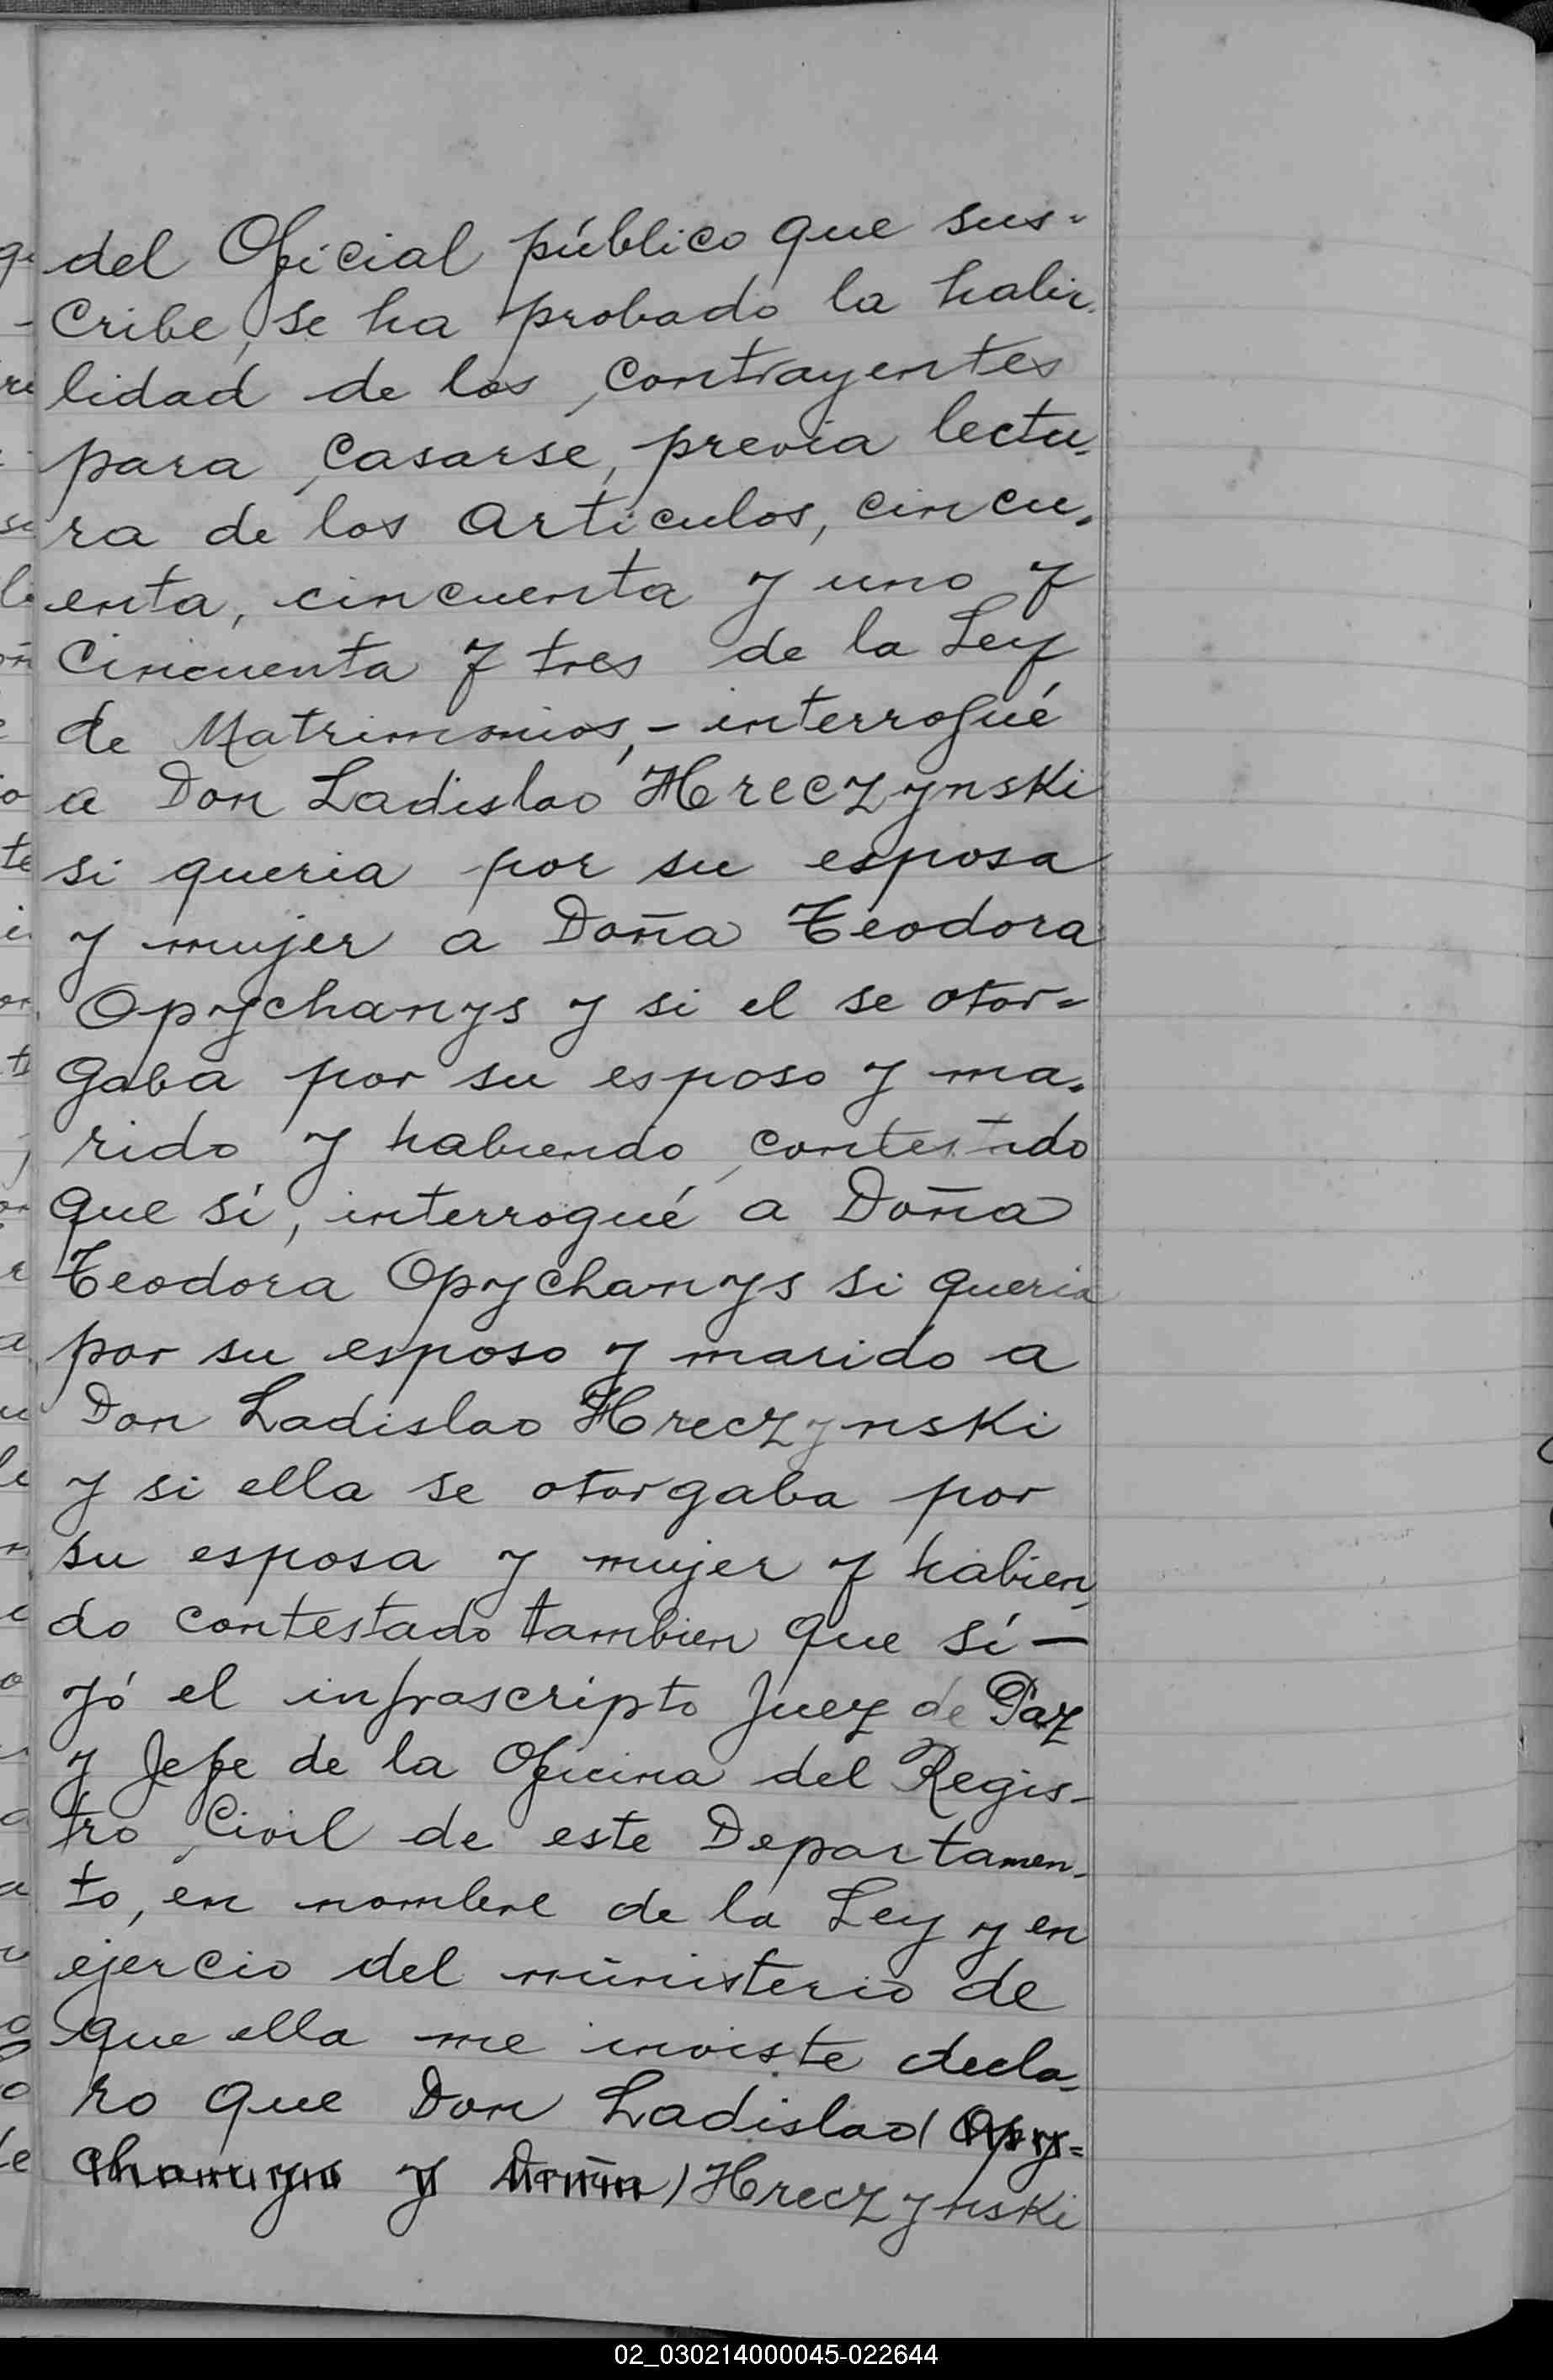 del Oficial público que sus-
cribe, se ha probado la habi-
lidad de los contrayentes
para casarse, previa lectu-
ra de los articulos, cincu-
enta, cincuenta y uno y
cincuenta y tres de la Ley
de Matrimonios,- interrogué
a Don Ladislao Hreczynski
si queria por su esposa
y mujer a Doña Teodora
Opychanys y si el se otor-
gaba por su esposo y ma-
rido y habiendo contestado
que sí, interrogué a Doña
Teodora Opychanys si queria
por su esposo y marido a
Don Ladislao Hreczynski
y si ella se otorgaba por
su esposa y mujer y habien-
do contestado tambien que sí -
yó el infrascripto Juez de Paz
y Jefe de la Oficina del Regis-
tro Civil de este Departamen-
to, en nombre de la Ley y en
ejercio del ministerio de
que ella me inviste decla-
ro que Don Ladislao (Opy-
chanys y Doña) Hreczynski
02_030214000045-022644